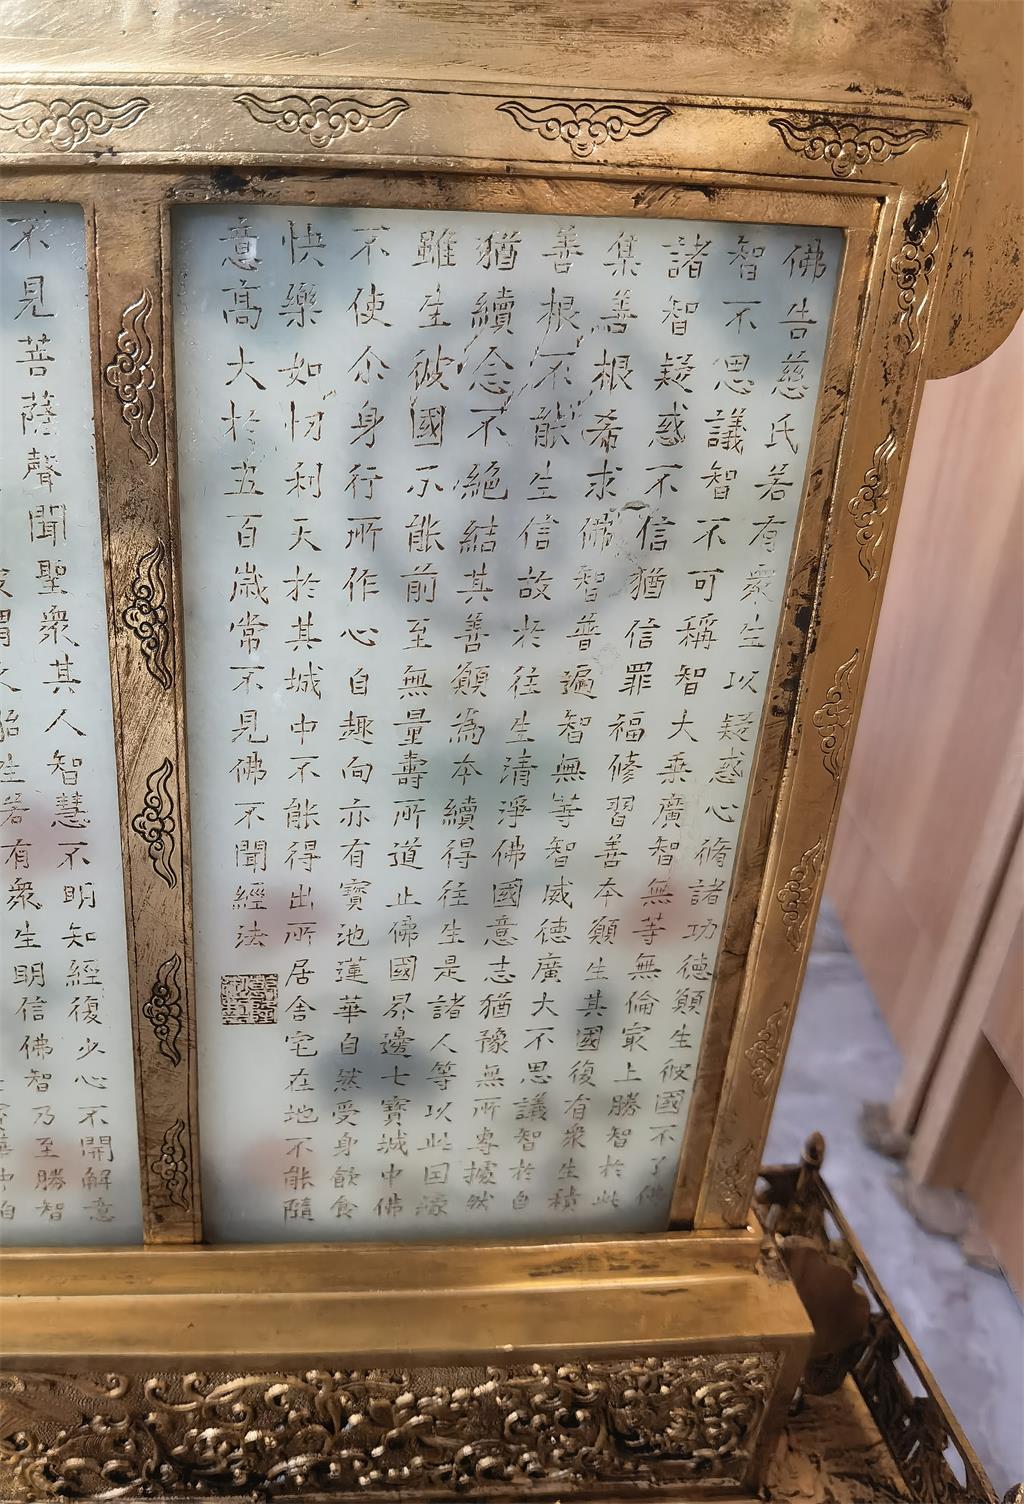 佛告慈氏若有衆生以疑惑心脩諸功德願生彼國不了佛
智不思議智不可稱智大乘廣智無等無倫冣上勝智於此
諸智疑惑不信猶信罪福修習善本願生其國復有衆生積
集善根希求佛智普遍智無等智威德廣大不思議智於自
善根不能生信故於往生清淨佛國意志猶豫無所專據然
猶續念不絕結其善願為本續得往生是諸人等以此因緣
雖生彼國不能前至無量壽所道止佛國界邊七寶城中佛
不使尒身行所作心自趣向亦有寶池蓮華自然受身飲食
快樂如忉利天於其城中不能得出所居舍宅在地不能隨
意高大於五百歲常不見佛不聞經法
不見菩薩聲聞聖衆其人智慧不明知經復少心不開解意
謂之胎生若有衆生明信佛智乃至勝智
華中自